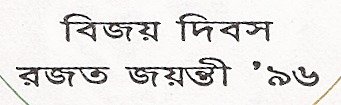 বিজয় দিবস
রজত জয়ন্তী '৯৬